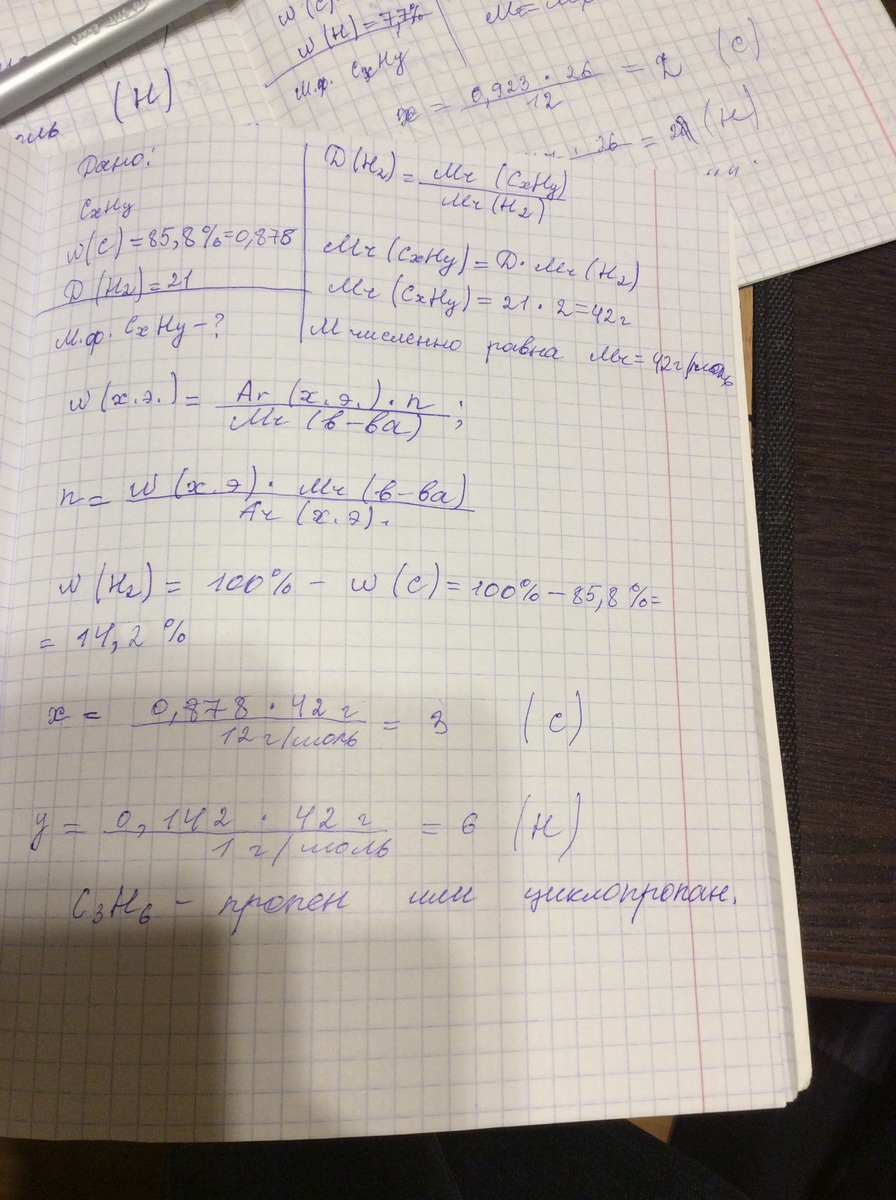 w(H)=7,7%
м.ф. CxHy
x = 0,923 · 26 / 12 = 2 (C)
26 = 2 (H)
(H)
Дано:
CxHy
w(C)=85,8%=0,878
D(H₂)=21
М.ф. CxHy-?
D(H₂) = Mr (CxHy) / Mr(H₂)
Mr (CxHy) = D · Mr (H₂)
Mr (CxHy) = 21 · 2 = 42 г
М численно равна Mr = 42 г/моль
w(х.э.) = Ar (х.э.) · n / Mr (в-ва) ;
n = w (х.э) · Mr (в-ва) / Ar (х.э).
w (H₂) = 100% - w (C) = 100% - 85,8% =
= 14,2 %
x = 0,878 · 42 г / 12 г/моль = 3 (C)
y = 0,142 · 42 г / 1 г/моль = 6 (H)
C₃H₆ - пропен или циклопропан.